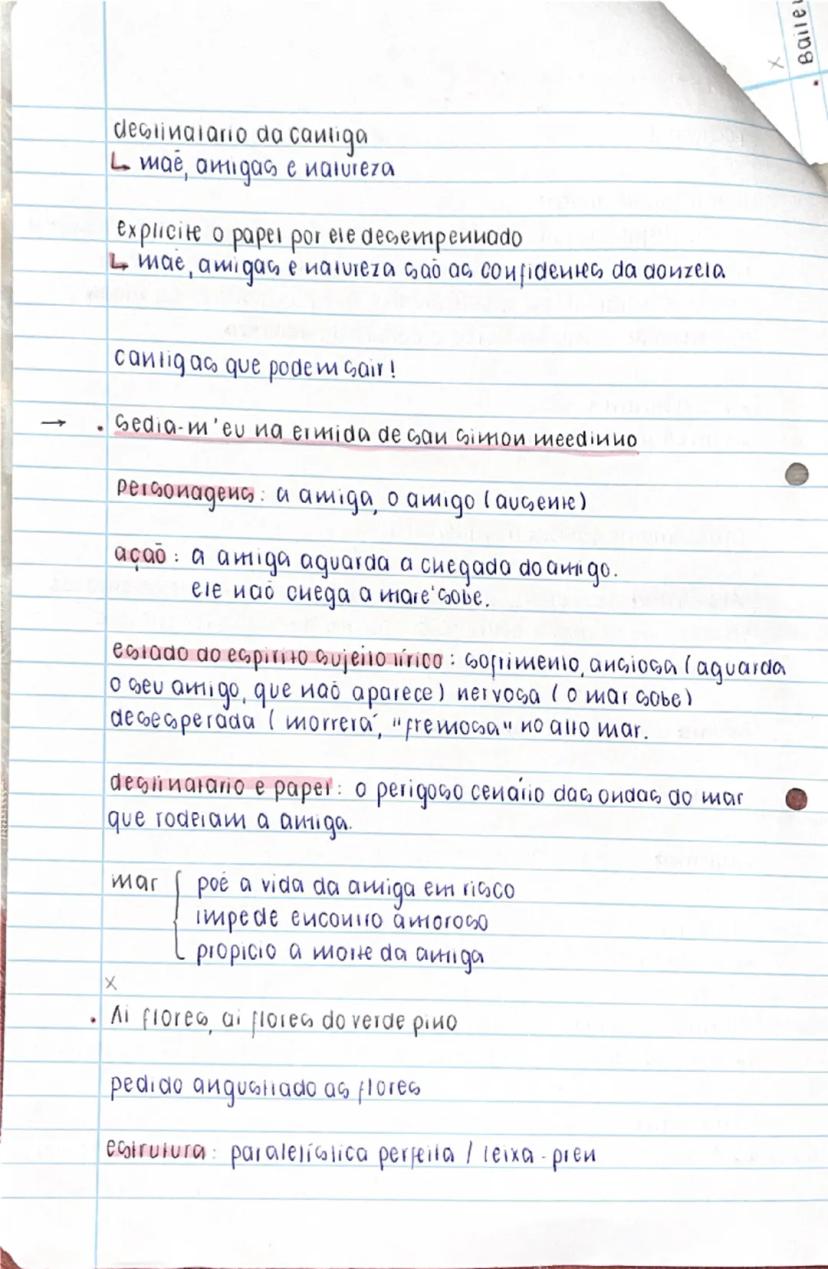 • Bailei
x
destinatário da cantiga
↳ mãe, amigas e natureza
explicite o papel por ele desempenhado
↳ mãe, amigas e natureza são as confidentes da donzela
cantigas que podem sair!
→ • sedia-m'eu na ermida de san simon meedinho
personagens: a amiga, o amigo (ausente)
ação: a amiga aguarda a chegada do amigo.
ele não chega a maré sobe.
estado do espirito sujeito lírico: sofrimento, ansiosa (aguarda
o seu amigo, que não aparece) nervosa (o mar sobe)
desesperada (morrerá, "fremosa" no alto mar.
destinatário e papel: o perigoso cenário das ondas do mar
que rodeiam a amiga.
mar { põe a vida da amiga em risco
impede encontro amoroso
propicio a morte da amiga
x
• Ai flores, ai flores do verde pino
pedido angustiado as flores
estrutura: paralelística perfeita / leixa-pren